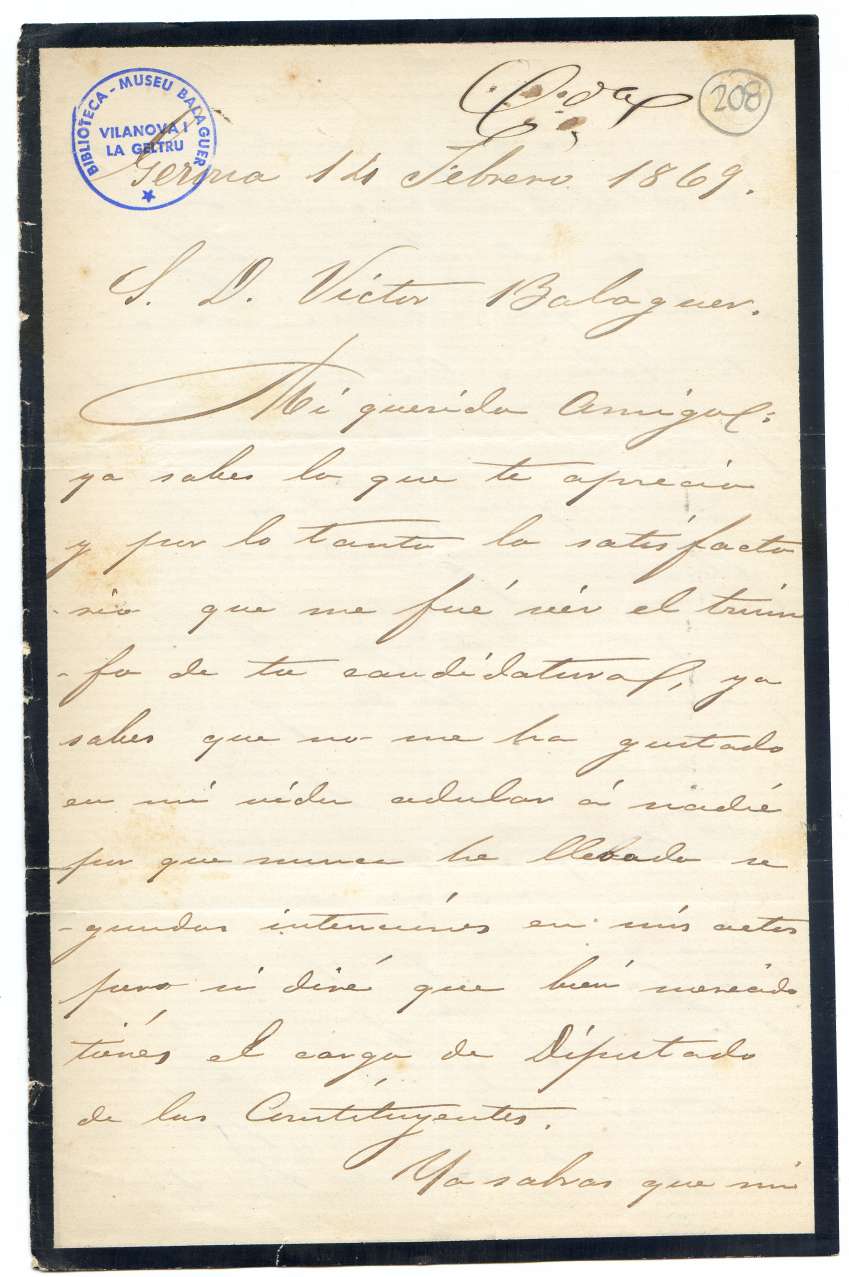 BIBLIOTECA - MUSEU BALAGUER
VILANOVA I
LA GELTRU
208
Gerona 14 Febrero 1869.
S. D. Victor Balaguer.
Mi querido amigo:
ya sabes lo que te aprecio
y por lo tanto lo satisfacto
-rio que me fué veér el triun
-fo de tu candidatura, ya
sabes que no me ha gustado
en mi vida adular á nadie
por que nunca he llebado se
-gundas intenciónes en mis actos
pero si diré que bién merecido
tiénes el cargo de Diputado
de las Constituyentes.
Ya sabras que mi